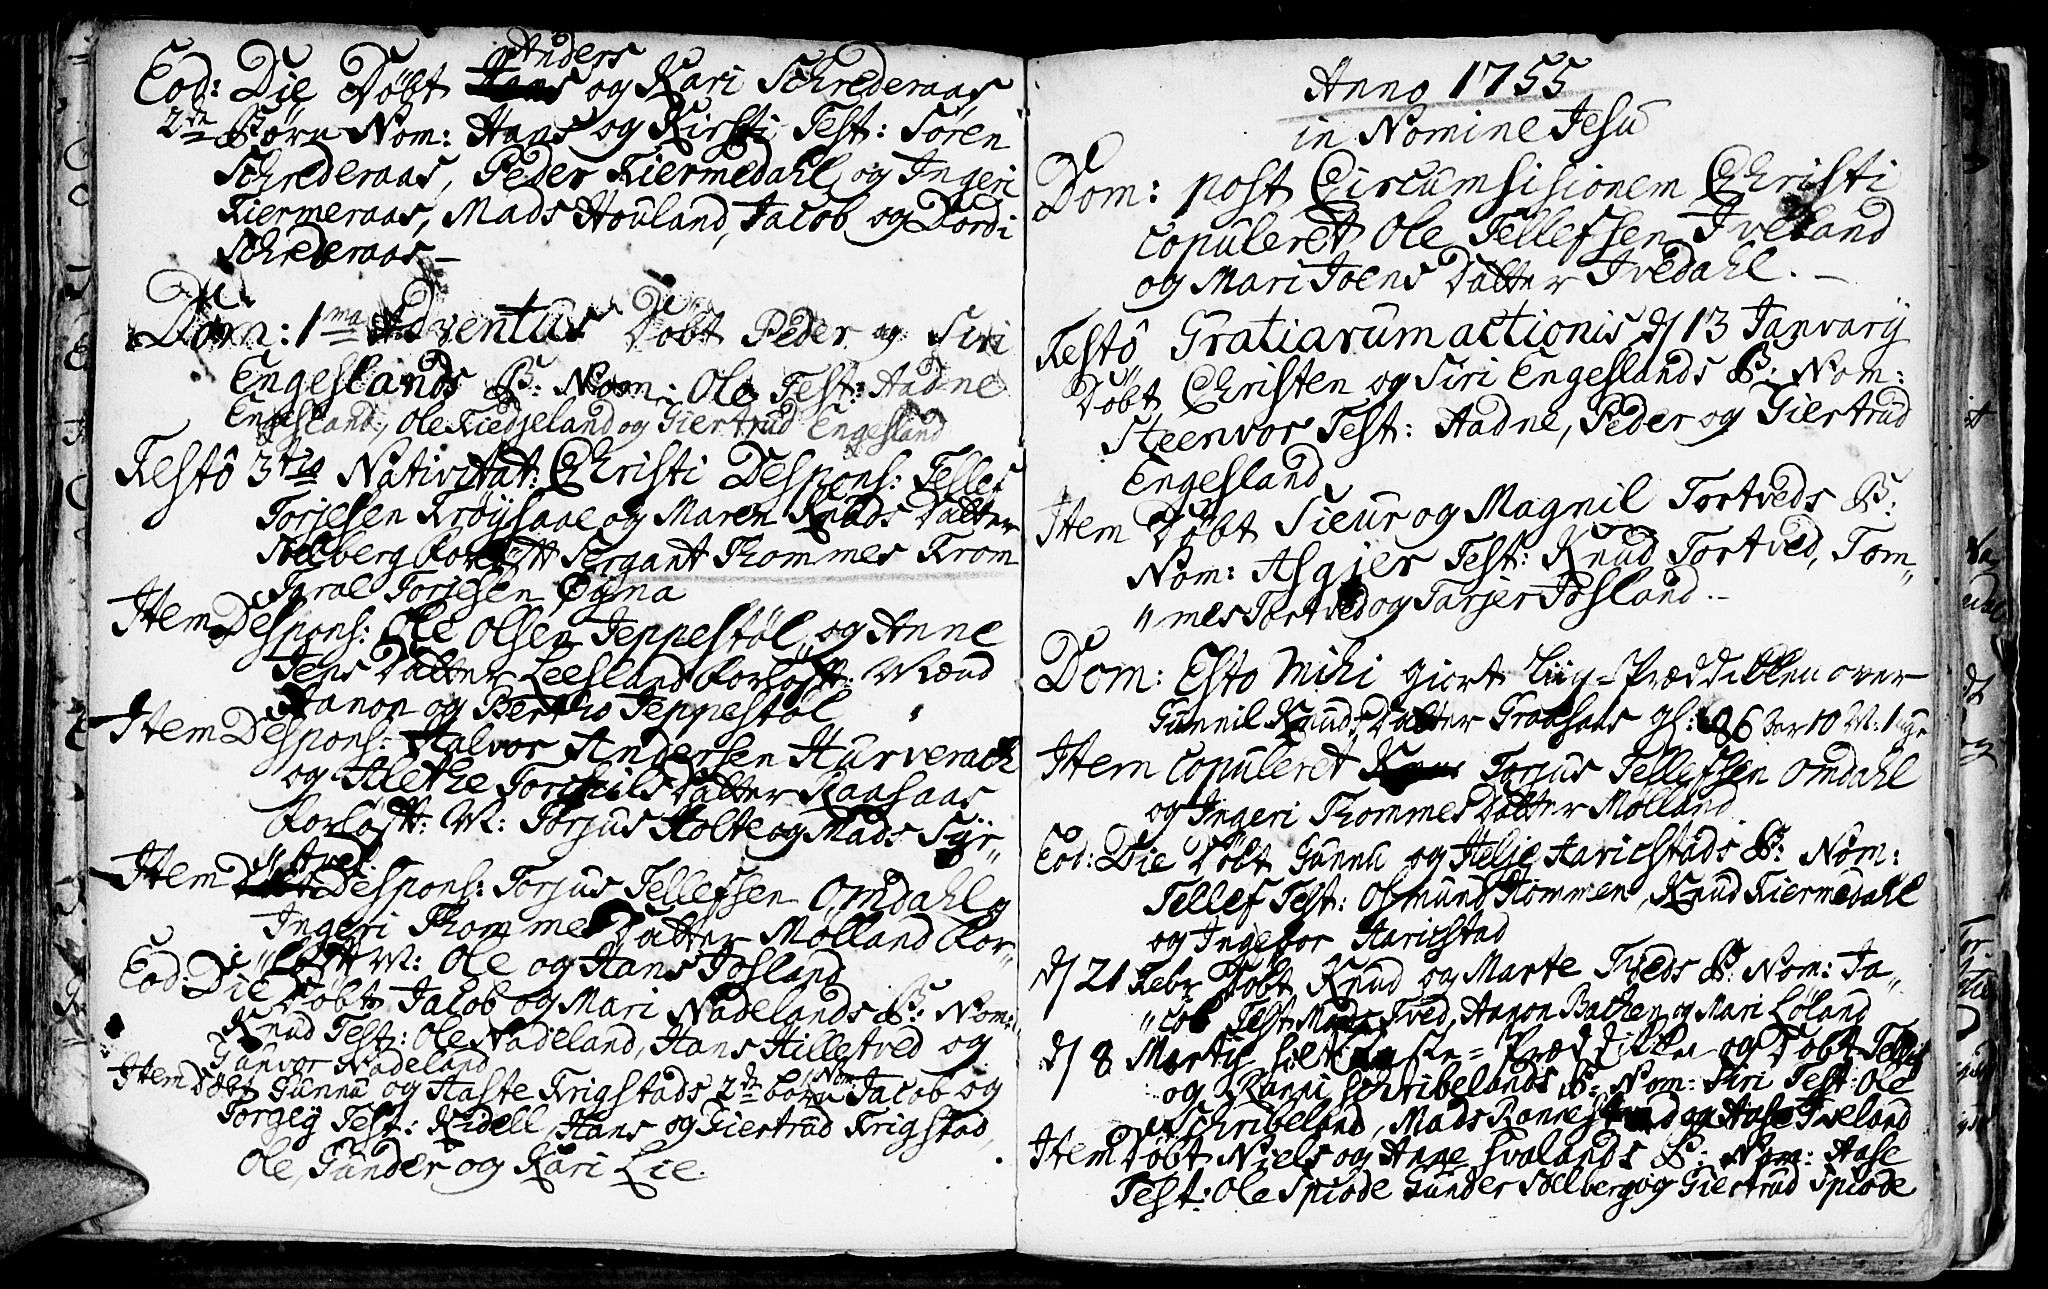 Anders
Eod: Die Döbt og Kari Schrederaas
2de Börn Nom: Hans og Kirsti Test: Sören
Schrederaas, Peder Kiermedahl og Ingeri
Kiermeraas, Mads Houland, Jacob og Dordi
Schrederaas
Dom: 1ma Adventus Döbt Peder og Siri
Engeslands B: Nom: Ole Test: Aadne
Engesland, Ole Kiedjeland og Giertrud Engesland
Festô 3tio Nativitat: Christi Despons: Tellef
Torjesen Röysaae og Maren Knuds Datter
Solberg Sergant Thommes From
Torjesen Øgna
Item Despons: Ole Olsen Jeppestöl og Anne
Jens Datter Leesland Forlöft: Mænd
Aanon og Berthe Jeppestöl
Item Despons: Halvor Andersen Hurverack
og Alethe Torchils Datter Raasaas
Forlöft: M: Torjus Holte og Mads Syr„
„tvet
Item Despons: Torjus Tellefsen Omdahl og
Ingeri Thommes Datter Mölland For„
„löft M: Ole og Hans Josland
Eod: Die Döbt Jacob og Mari Nadelands B: Nom:
Knud Test: Ole Nadeland, Hans Hilletved og
Gunvor Nadeland
Item Döbt Gunnu og Aaste Frigstads 2de börn Nom: Jacob og
Torgey Test: Kidell, Hans og Giertrud Frigstad,
Ole, Gunder og Kari Lie.
Anno 1755
in Nomine Jesu
Dom: post Circumsisionem Christi
Copuleret Ole Tellefsen Iveland
og Mari Joens Datter Ivedahl.
Festô Gratiarum actionis d/ 13 Janvarij
Döbt Christen og Siri Engeslands B: Nom:
Steenvor Test: Aadne, Peder og Giertrud
Engesland
Item Döbt Sieur og Magnil Tortveds B:
Nom: Asgier Test: Knud Tortved, Tom„
„mes Tortved og Tarjer Josland.
Dom: Esto Mihi giort Liig=Præddikken over
Gunnil Knuds Datter Graasaas gl: 86 aar 10 M: 1 uge
Item Copuleret Torjus Tellefsen Omdahl
og Ingeri Thommes Datter Mölland.
Eod: Die Döbt Gunnu og Helje Harichstads B: Nom:
Tellef Test: Osmund Hommen, Knud Kiermedahl
og Ingebor Harichstad
d/ 21 Febr Döbt Knud og Marte Tveds B: Nom: Ja„
„cob Test: Mads Tved, Aanon Bakken og Mari Löland
d/ 8 Martij Præddikken og Döbt Tellef
og Ranni Schribelands B: Nom: Siri Test: Ole
Schribeland, Mads og Aase Iveland
Item Döbt Niels og Anne Svalands B: Nom: Aase
Test: Ole Spiode Gunder Solberg og Giertrud Spiode